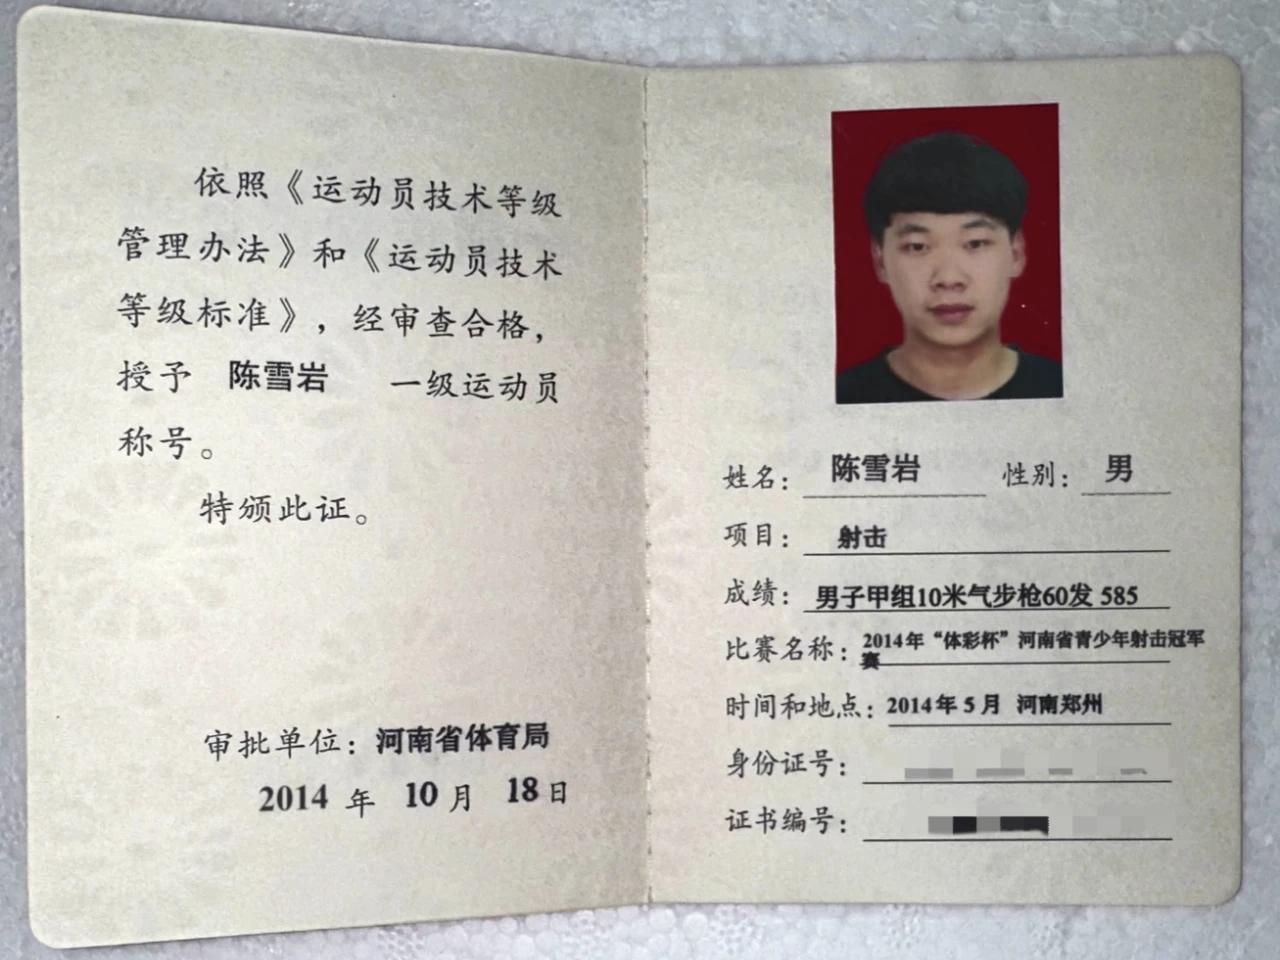 依照《运动员技术等级
管理办法》和《运动员技术
等级标准》，经审查合格，
授予 陈雪岩 一级运动员
称号。
特颁此证。
审批单位：河南省体育局
2014 年 10 月 18 日
姓名：陈雪岩 性别：男
项目：射击
成绩：男子甲组10米气步枪60发 585
比赛名称：2014年“体彩杯”河南省青少年射击冠军
赛
时间和地点：2014年5月 河南郑州
身份证号：
证书编号：